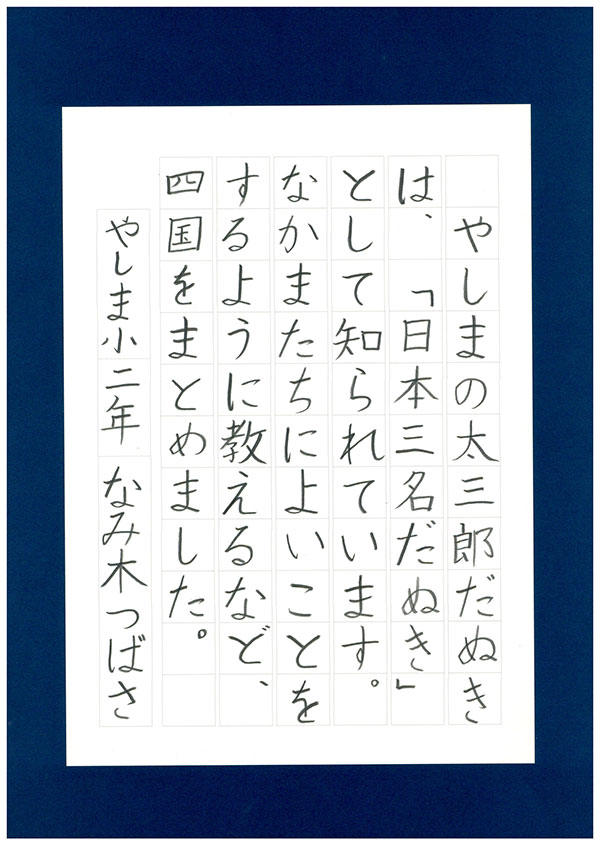 やしまの太三郎だぬき
は、「日本三名だぬき」
として知られています。
なかまたちによいことを
するように教えるなど、
四国をまとめました。
やしま小二年 なみ木つばさ